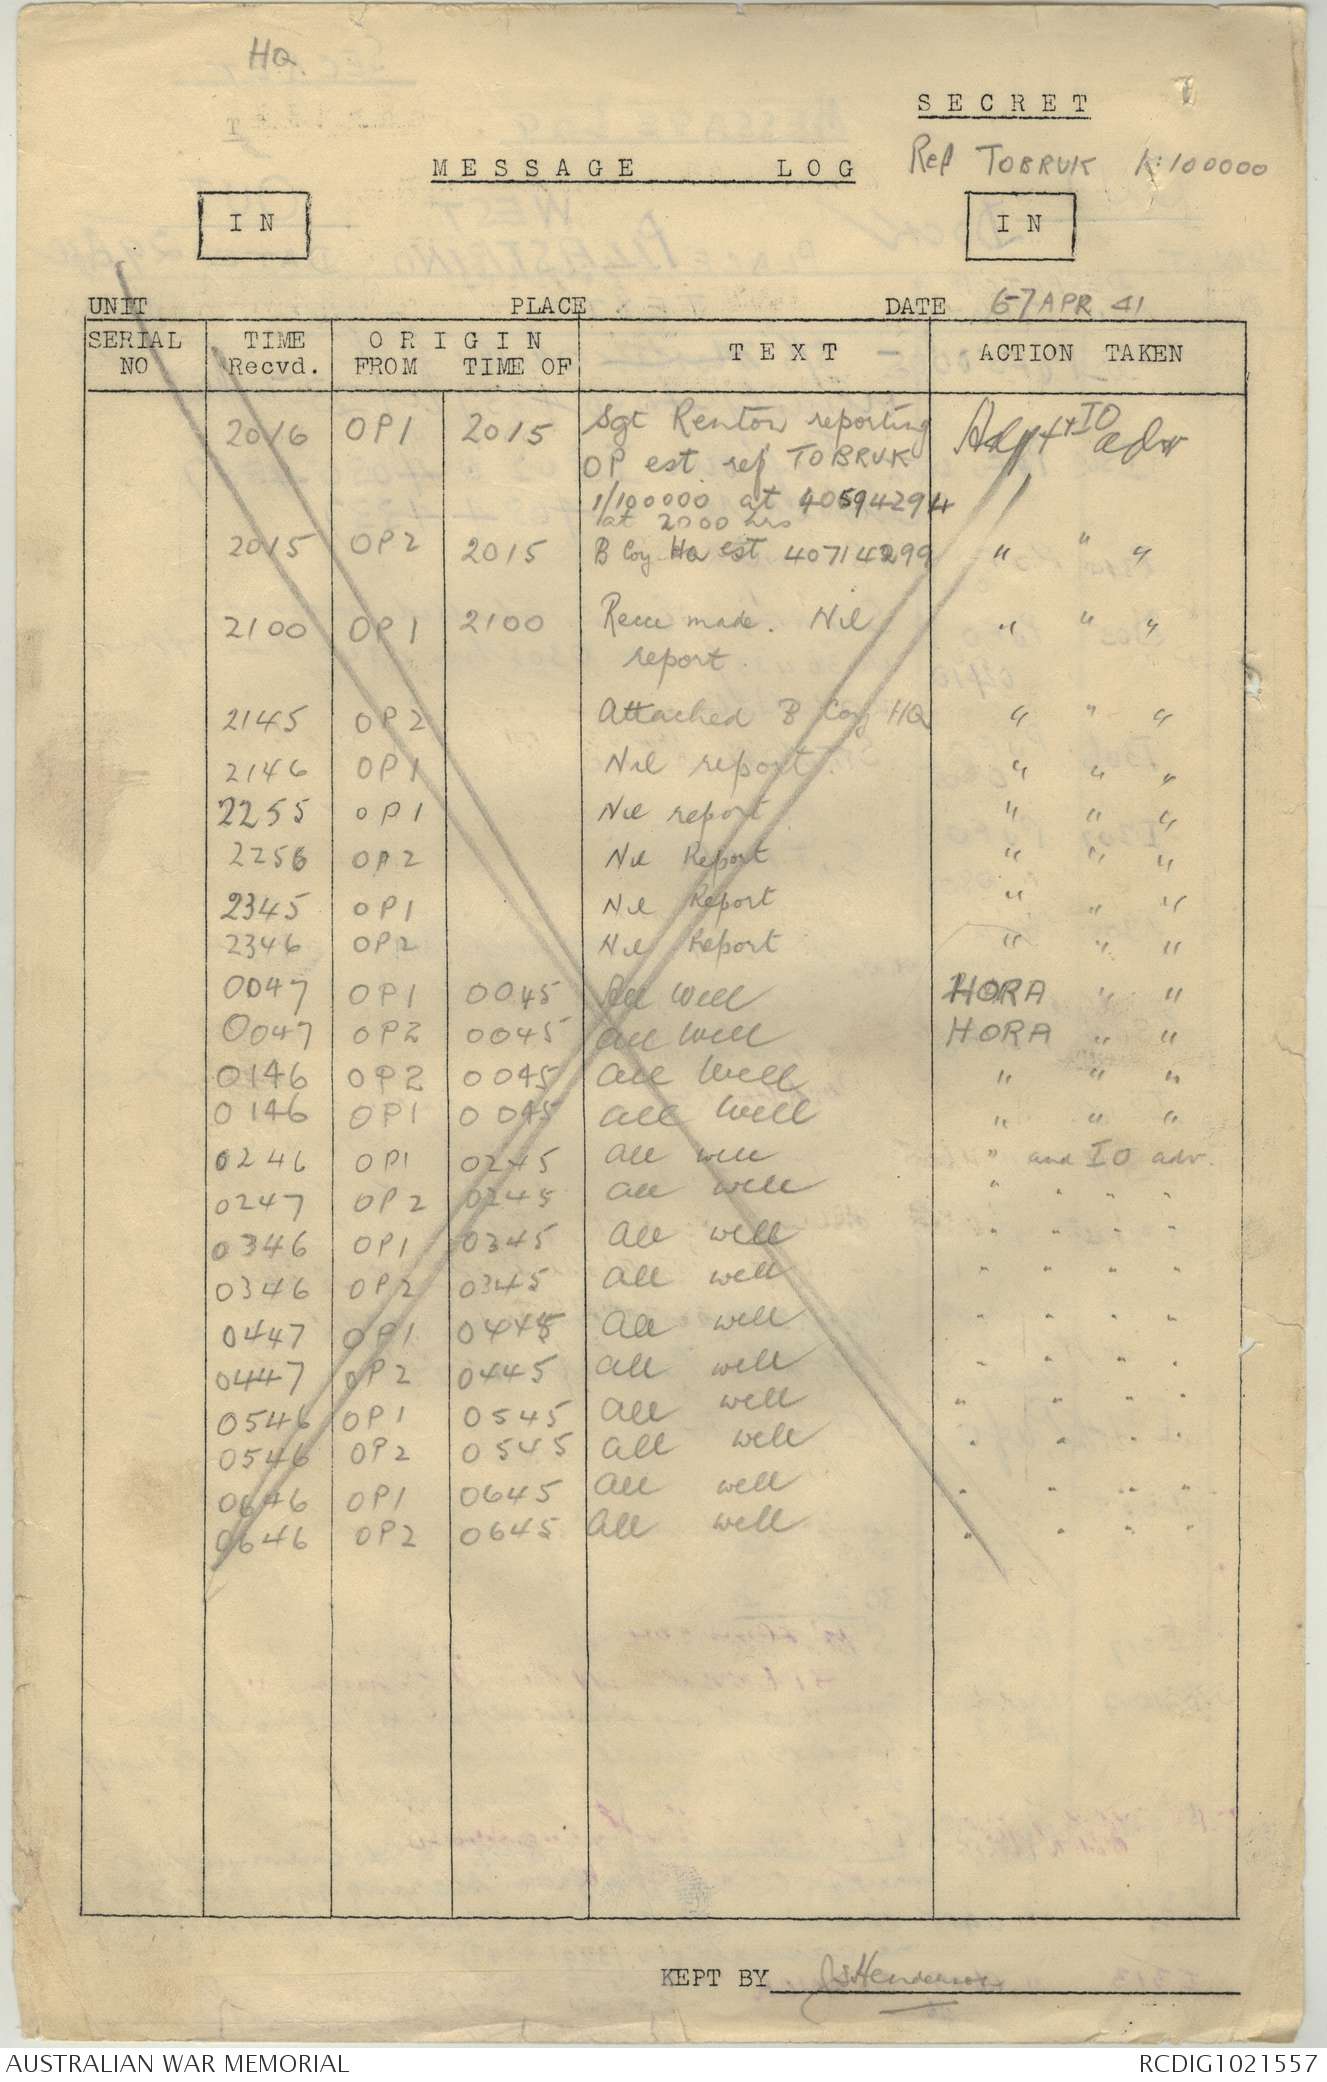 HQ.
SECRET
MESSAGE LOG
Ref TOBRUK 1:100000
IN
IN
UNIT PLACE DATE 6-7 APR 41
SERIAL NO TIME Recvd. ORIGIN FROM TIME OF TEXT ACTION TAKEN
2016 OP1 2015 Sgt Renton reporting Adjt + IO adv
OP est. ref TOBRUK
1/100000 at 40594294
at 2000 hrs
2015 OP2 2015 B Coy HQ est 40714299 " " "
2100 OP1 2100 Recce made. Nil " " "
report.
2145 OP2 Attached B Coy HQ " " "
2146 OP1 Nil report. " " "
2255 OP1 Nil report " " "
2256 OP2 Nil Report " " "
2345 OP1 Nil Report " " "
2346 OP2 Nil Report " " "
0047 OP1 0045 All Well HORA " "
0047 OP2 0045 All Well HORA " "
0146 OP2 0045 All Well " " "
0146 OP1 0045 All Well " " "
0246 OP1 0245 All well " and IO adv.
0247 OP2 0245 All well " " " "
0346 OP1 0345 All well " " " "
0346 OP2 0345 All well " " " "
0447 OP1 0445 All well " " " "
0447 OP2 0445 All well " " " "
0546 OP1 0545 All well " " " "
0546 OP2 0545 All well " " " "
0646 OP1 0645 All well " " " "
0646 OP2 0645 All well " " " "
KEPT BY JSHenderson
AUSTRALIAN WAR MEMORIAL RCDIG1021557